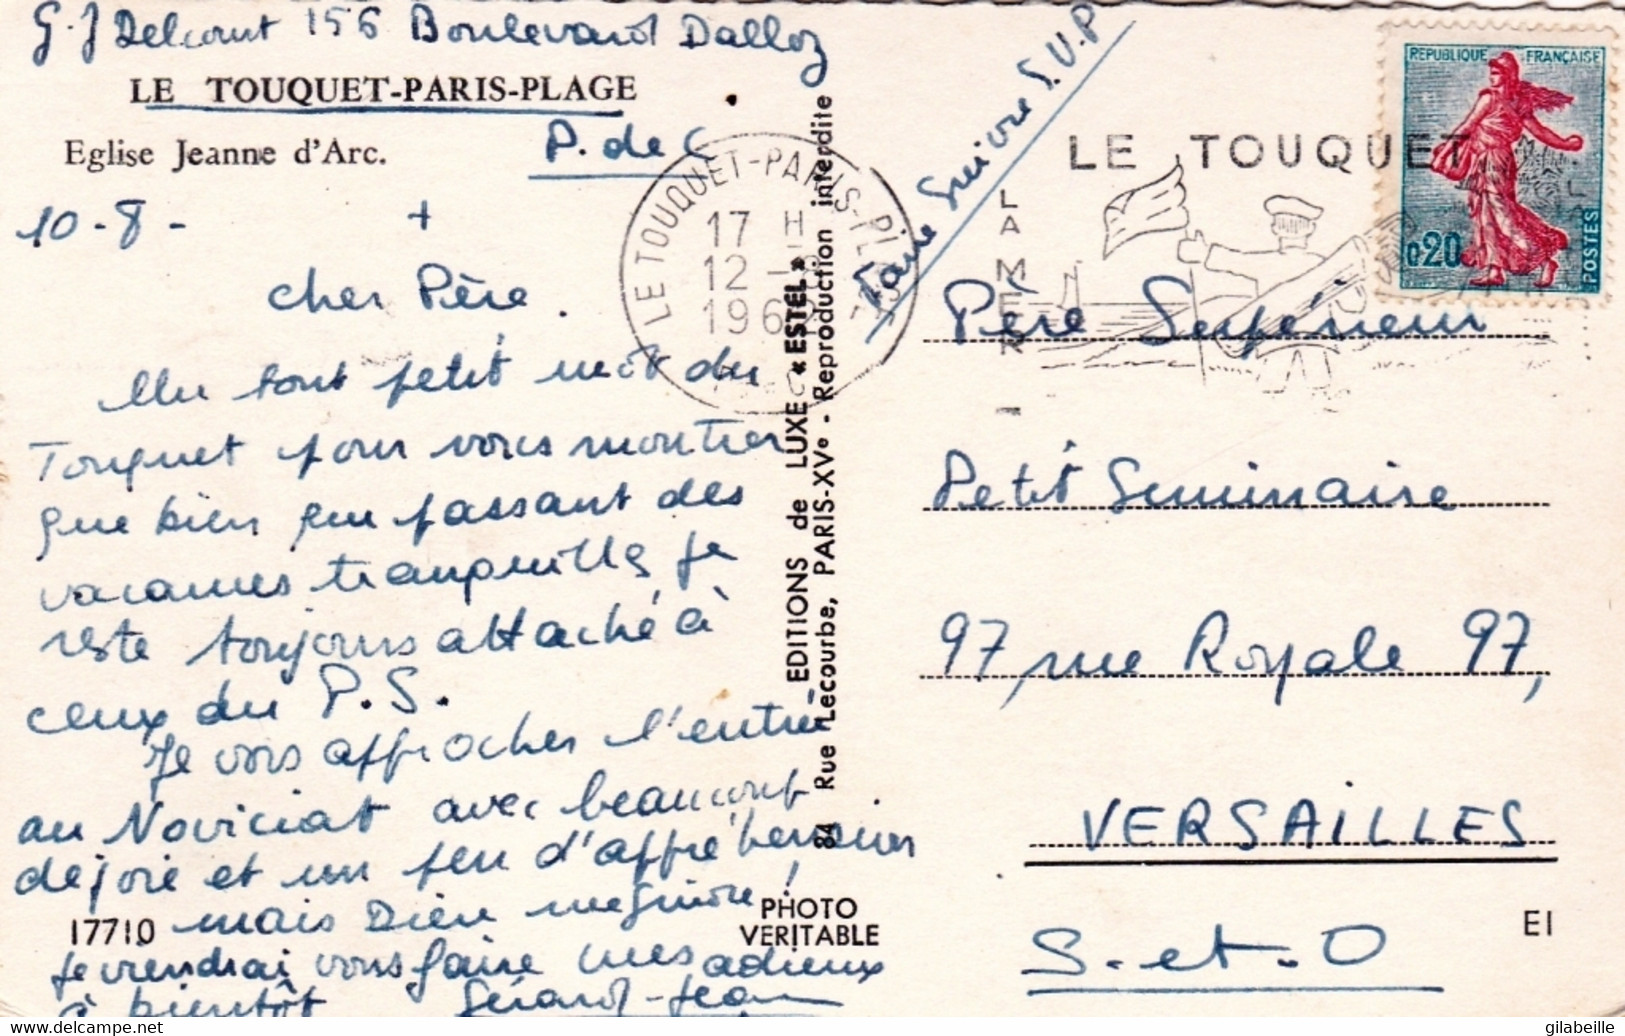 G.J Delcourt 156 Boulevard Dalloz
LE TOUQUET-PARIS-PLAGE
P. de C
Eglise Jeanne d'Arc.
10-8-
+
Cher Père.
Un tout petit mot du
Touquet pour vous montrer
que bien que passant des
vacances tranquilles je
reste toujours attaché à
ceux du P.S.
Je vois approcher l'entrée
au Noviciat avec beaucoup
de joie et un peu d'appréhension
mais Dieu me guidera,
je viendrai vous faire mes adieux
à bientôt Gérard-Jean
17710
PHOTO
VERITABLE
EDITIONS de LUXE « ESTEL »
84 Rue Lecourbe, PARIS-XVe - Reproduction interdite
LE TOUQUET-PARIS-PLAGE
17 H
12 - 8
196
Faire Suivre S.V.P
LE TOUQUET
LA MER
REPUBLIQUE FRANÇAISE
0,20
POSTES
Père Supérieur
Petit Séminaire
97, rue Royale 97,
VERSAILLES
S.-et-O
EI
gilabeille